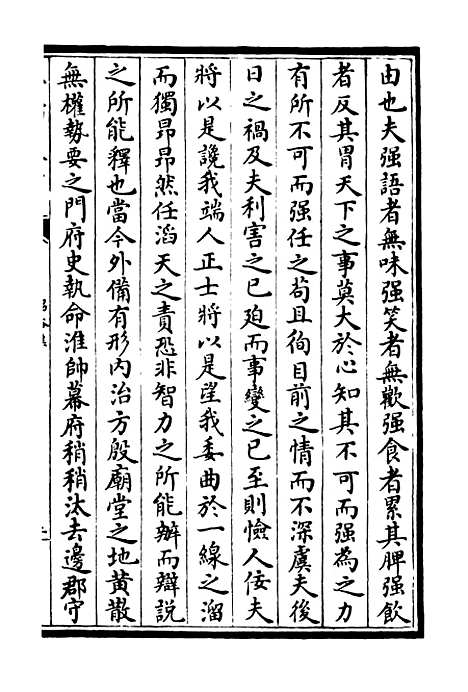 由也夫强語者無味强笑者無歡强食者累其脾强飲
者反其胃天下之事莫大於心知其不可而强為之力
有所不可而强任之苟且徇目前之情而不深虞夫後
日之禍及夫利害之已廹而事變之已至則憸人佞夫
將以是讒我端人正士將以是望我委曲於一線之溜
而獨昂昂然任滔天之責恐非智力之所能辦而辯說
之所能釋也當今外備有形内治方殷廟堂之地黄散
無權勢要之門府史執命淮帥幕府稍稍汰去邊郡守